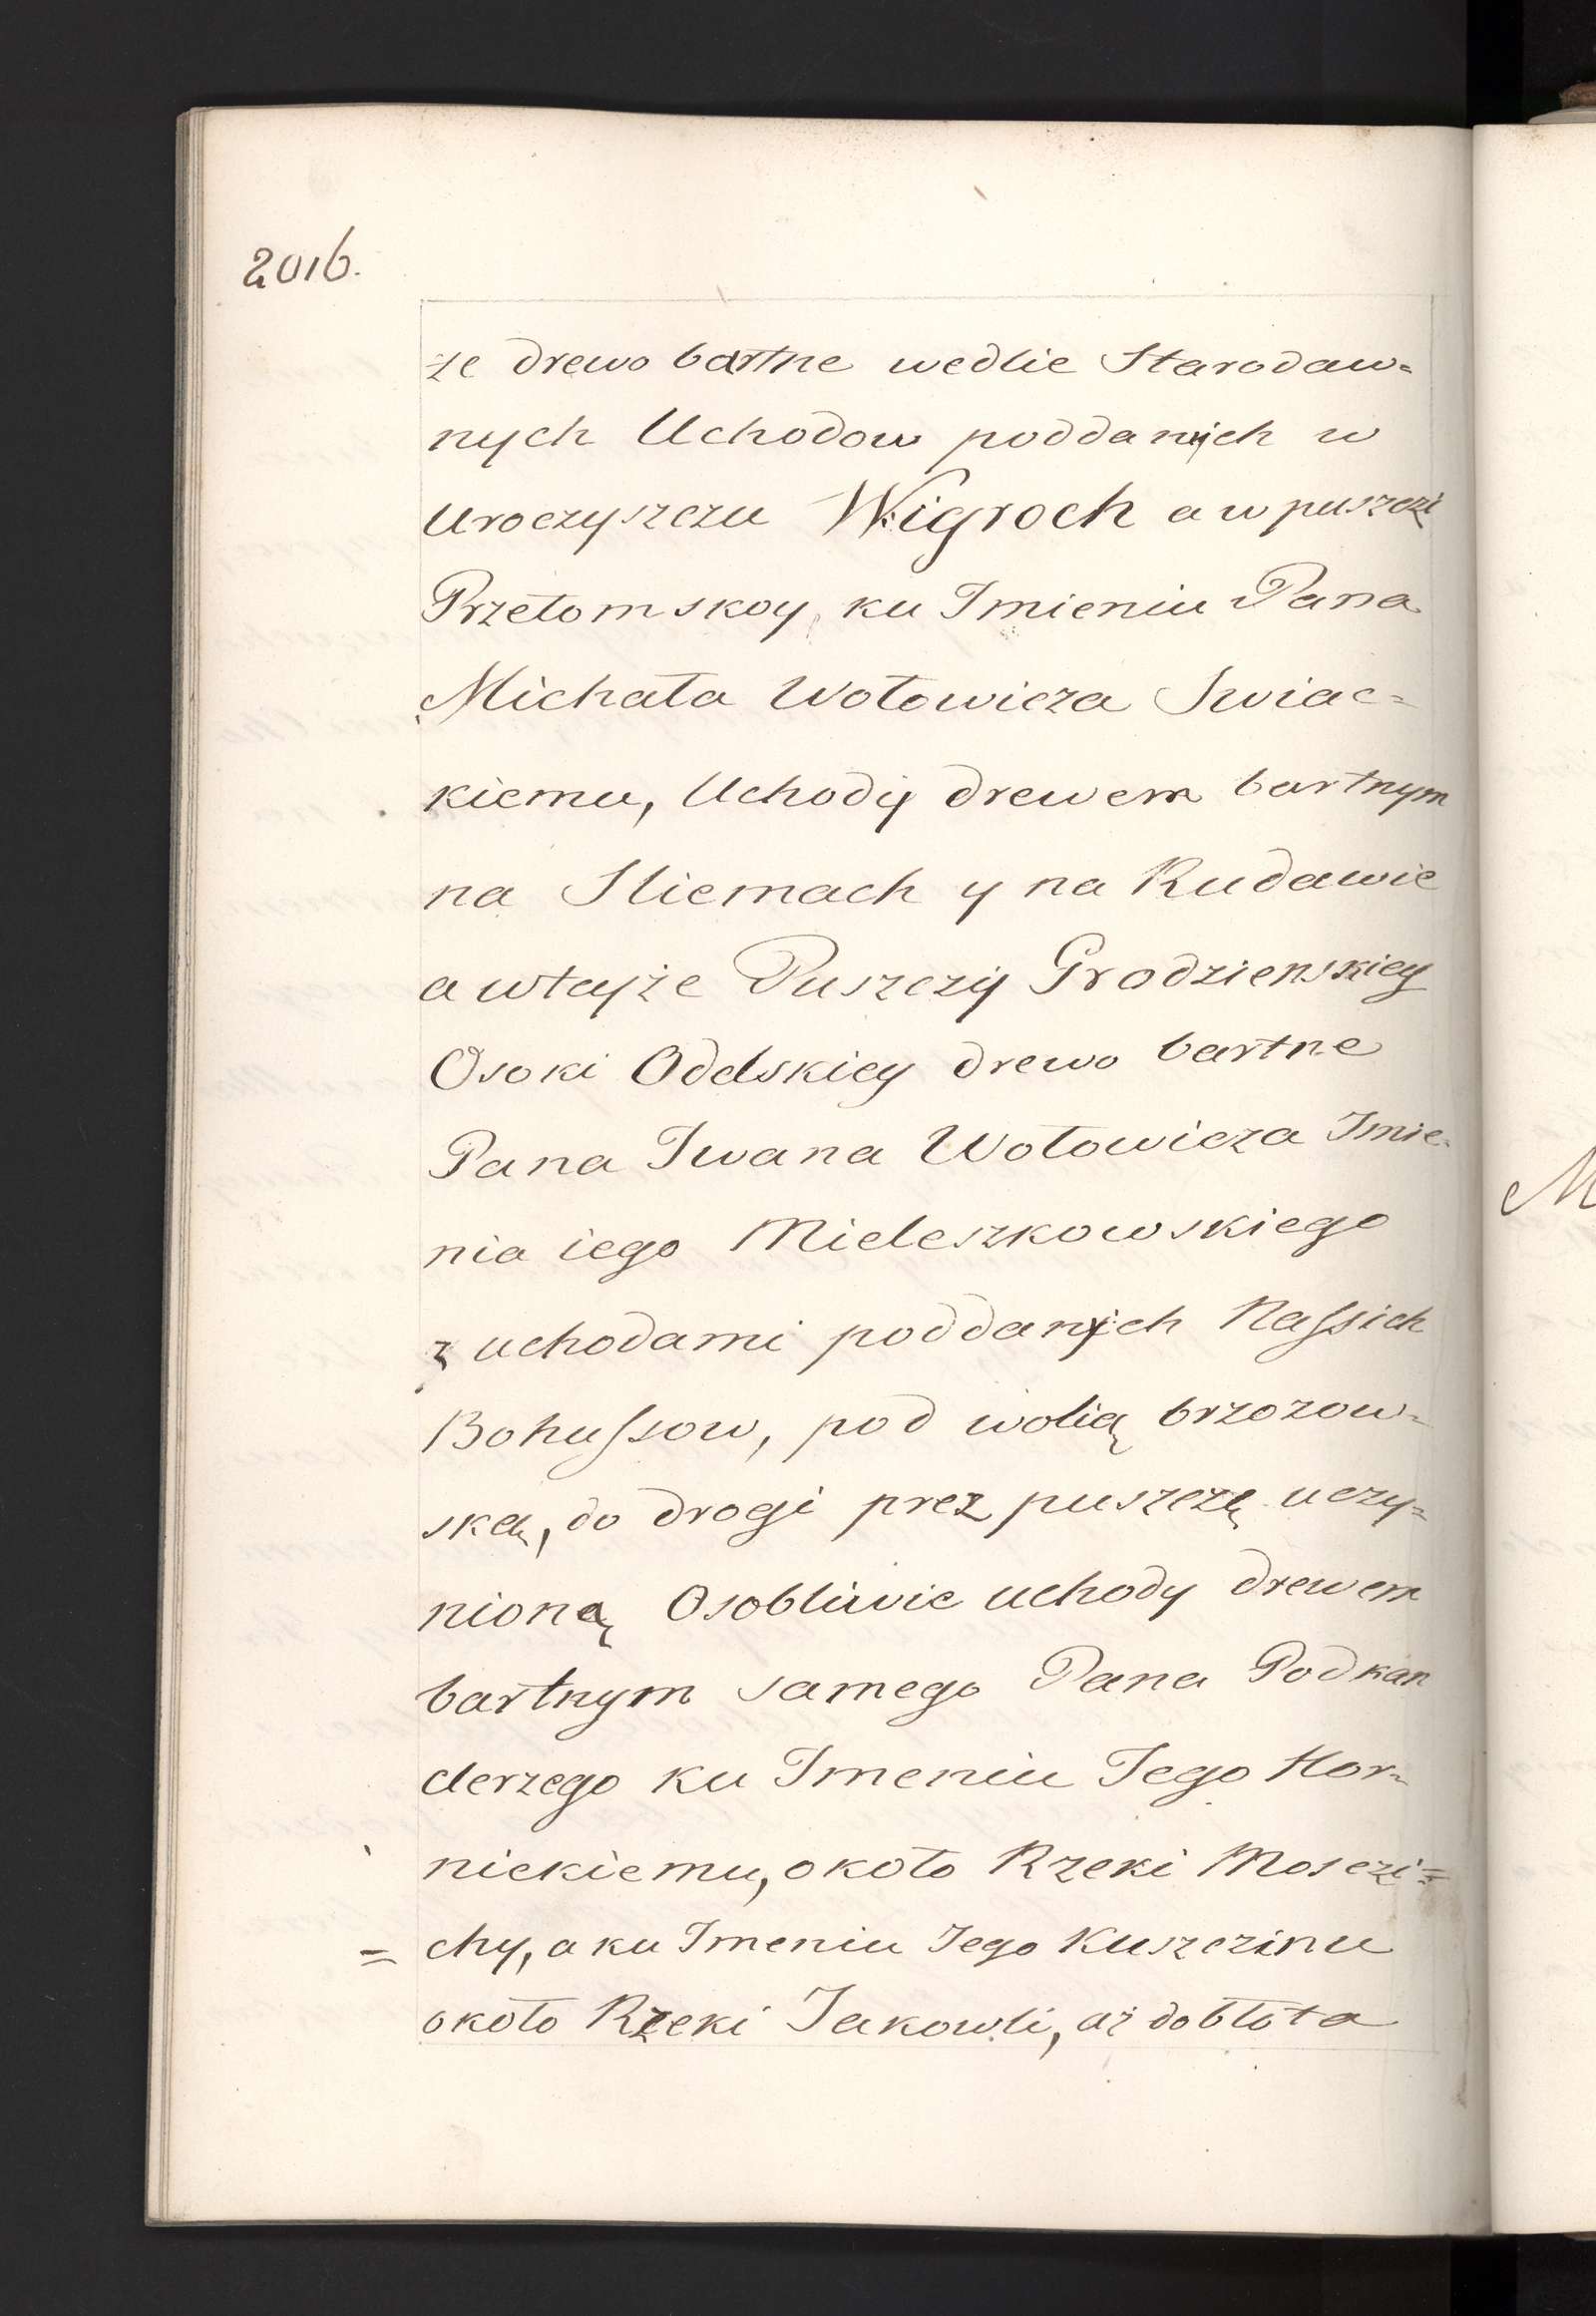 2016.
że drewo bartne wedlie Starodaw=
nych Uchodow poddanych w
Uroczyszczu Wigroch a w puszczi
Przełomskoy, ku Imieniu Pana
Michała Wołowicza Swiac=
kiemu, Uchody drewem bartnym
na Sliemach y na Rudawie
a wtayże Puszczy Grodzienskiey
Osoki Odelskiey drewo bartne
Pana Iwana Wołowicza Imie=
nia iego Mieleszkowskiego
z uchodami poddanych Naſsich
Bohuſsow, pod wolią brzozow=
ską, do drogi prez puszczę uczy=
nioną Osobliwie uchody drewem
bartnym samego Pana Podkan
clerzego ku Imeniu Iego Hor=
nickiemu, około Rzeki Mosczi=
= chy, a ku Imeniu Iego Kuszczinu
około Rzeki Iakowli, aż do błota
M